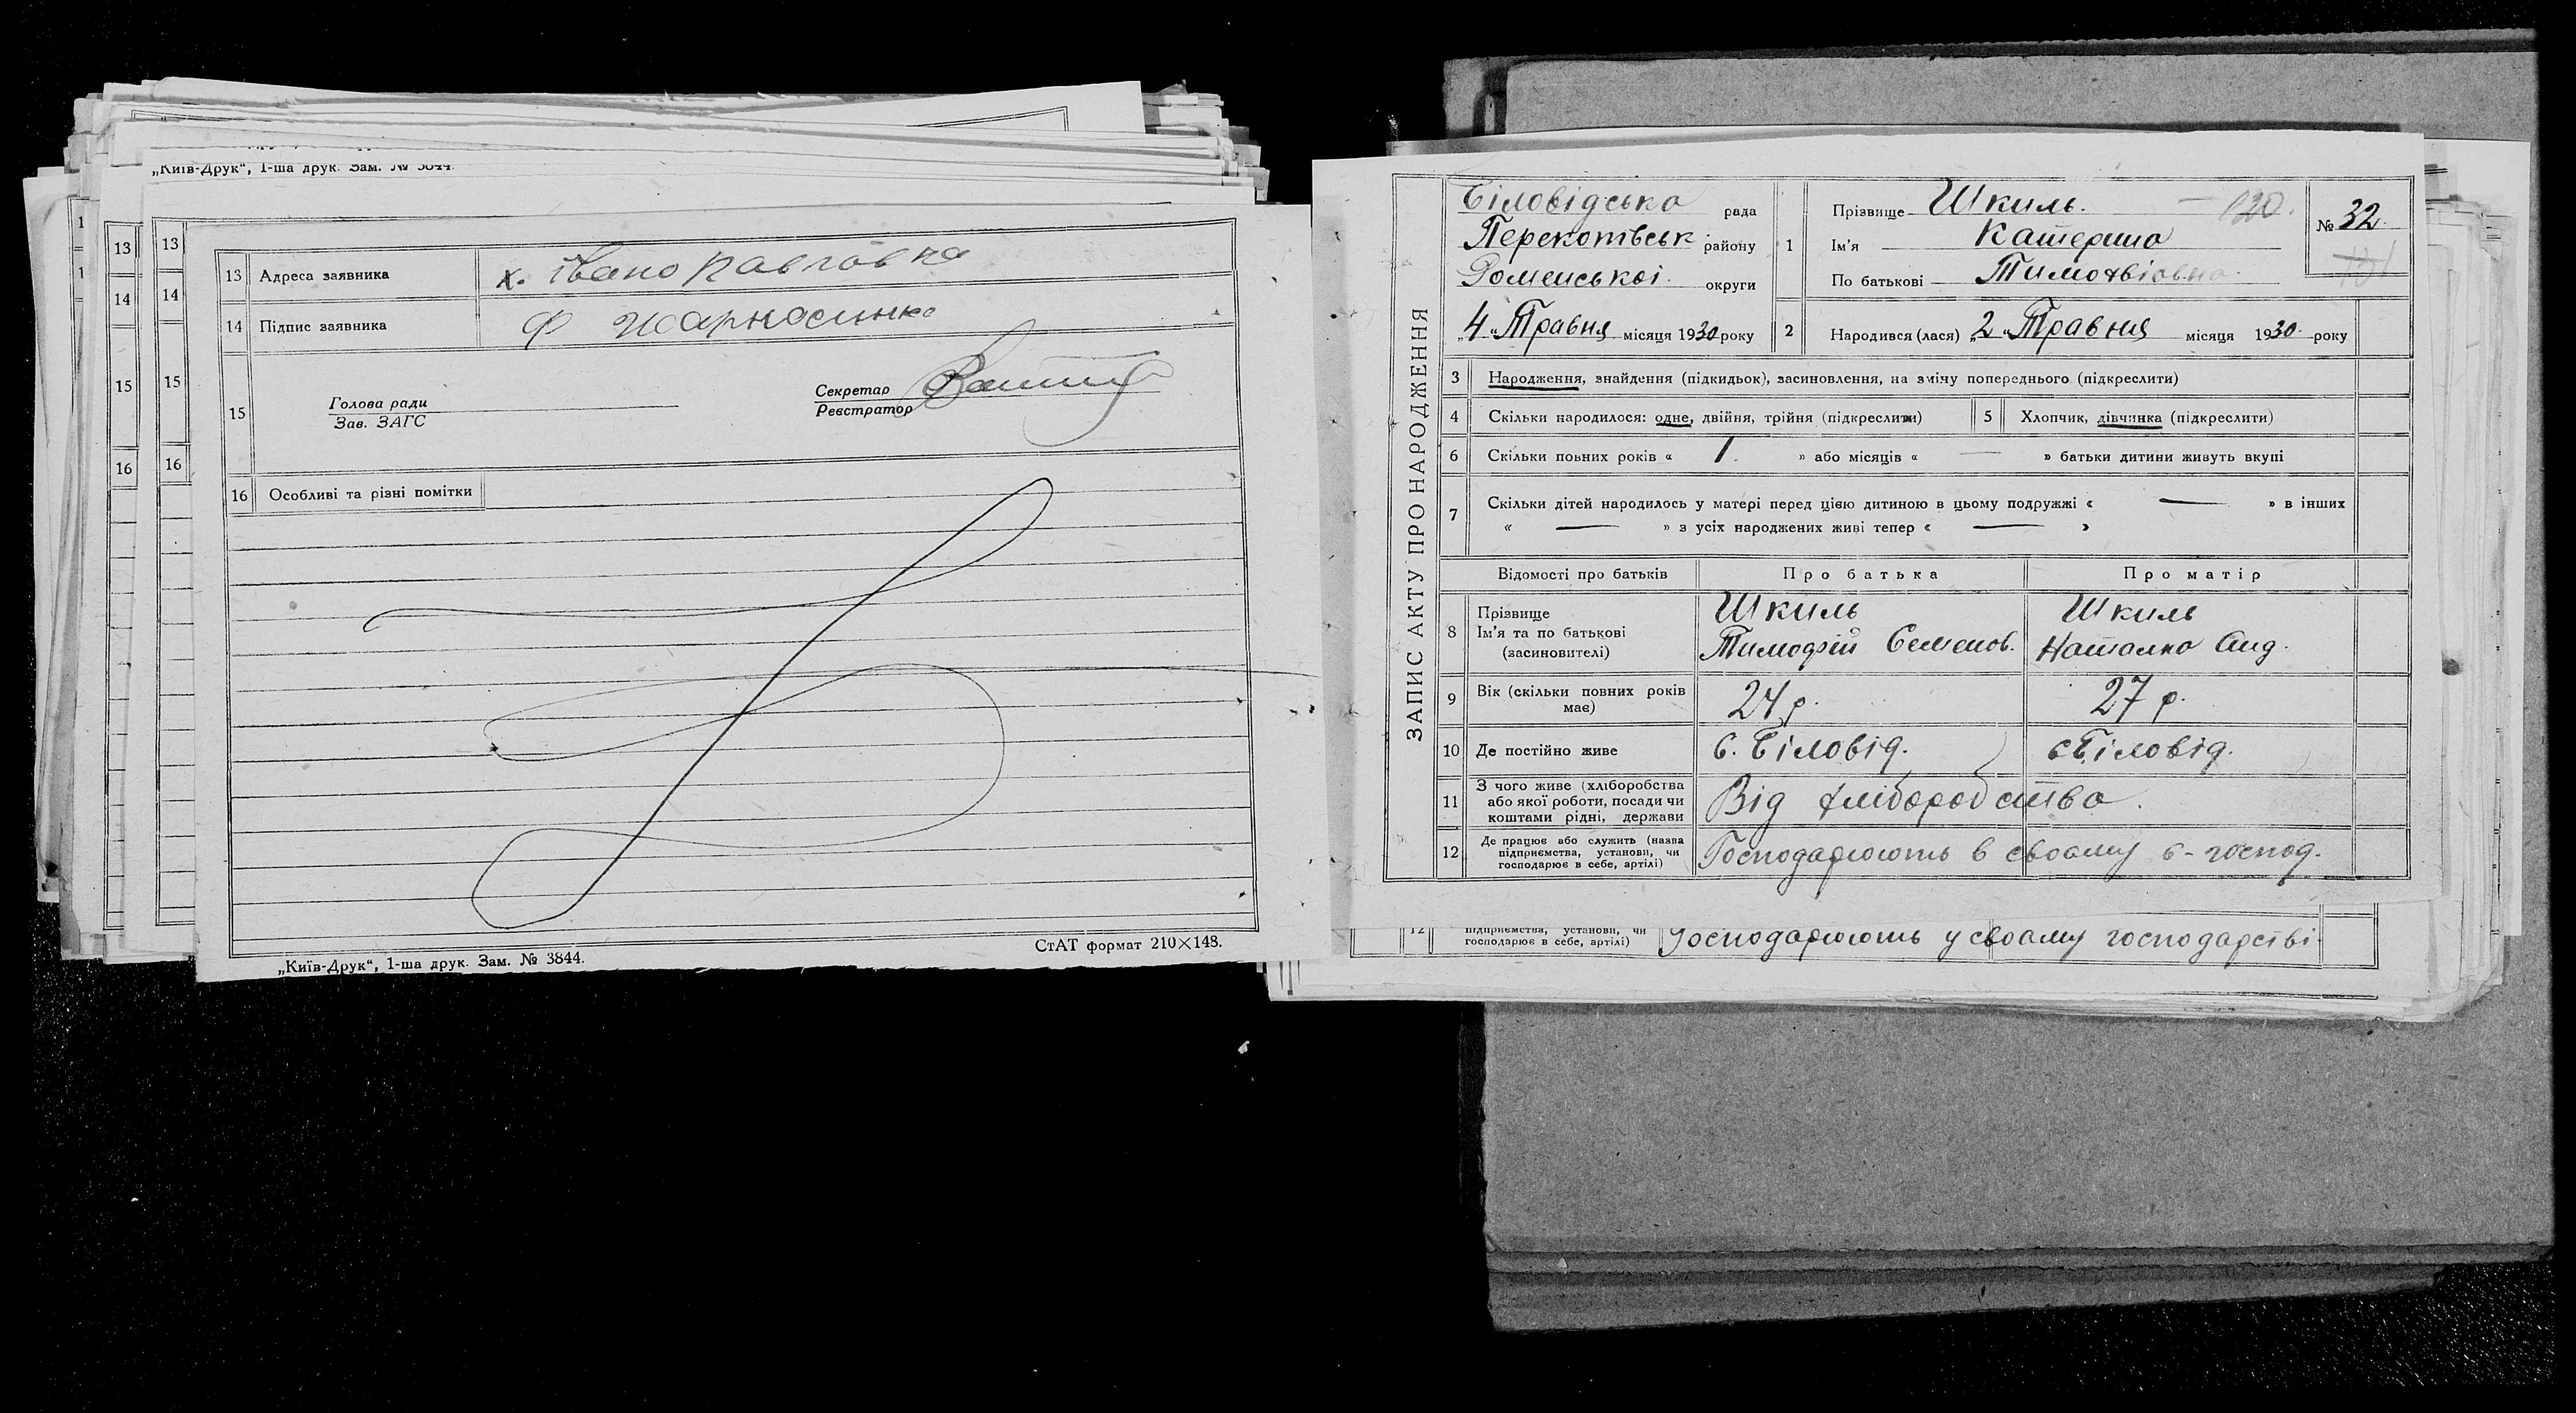 „Київ-Друк“, 1-ша друк. Зам. № 3844.
13 Адреса заявника х. Іванопавловка
14 Підпис заявника Ф
15 Голова ради
Зав. ЗАГС
Секретар
Реєстратор
16 Особливі та різні помітки
СтАТ формат 210×148.
„Київ-Друк“, 1-ша друк. Зам. № 3844.
13
14
15
16
13
14
15
16
ЗАПИС АКТУ ПРО НАРОДЖЕННЯ
Біловідська рада
Перекопівськ району
Роменської округи
„4“ Травня місяця 1930 року
1 Прізвище Шкиль 120.
Ім'я Катерина
По батькові Тимофвіовна
№ 32
2 Народився (лася) „2“ Травня місяця 1930 року
3 Народження, знайдення (підкидьок), засиновлення, на зміну попереднього (підкреслити)
4 Скільки народилося: одне, двійня, трійня (підкреслити) 5 Хлопчик, дівчинка (підкреслити)
6 Скільки повних років « 1 » або місяців « — » батьки дитини живуть вкупі
7 Скільки дітей народилось у матері перед цією дитиною в цьому подружжі « — » в інших
« — » з усіх народжених живі тепер « — »
Відомості про батьків Про батька Про матір
8 Прізвище Шкиль Шкиль
Ім'я та по батькові Тимофій Семенов. Наталка Анд.
(засновителі)
9 Вік (скільки повних років має) 24 р. 27 р.
10 Де постійно живе с. Біловід. с. Біловід.
11 З чого живе (хліборобства
або якої роботи, посади чи
коштами рідні, держави Від хліборобства.
12 Де працює або служить (назва
підприємства, установи, чи
господарює в себе, артілі) Господарюють в своєму с-господ.
12 підприємства, установи, чи
господарює в себе, артілі) Господарюють у своєму господарстві